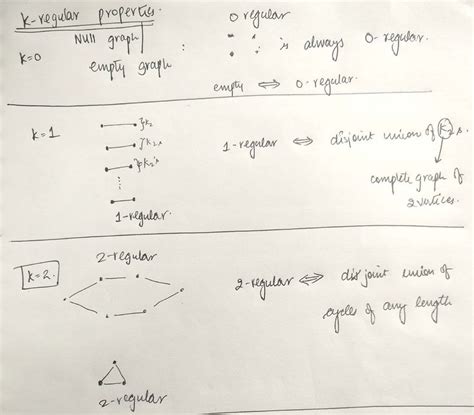 K-regular properties.
0 regular
k=0
Null graph
empty graph
:
is always 0-regular.
empty ⟺ 0-regular.
k=1
}K₂
}K₂,s
}K₂'s
⋮
1-regular.
1-regular ⟺ disjoint union of K₂s.
complete graph of
2 vertices.
k=2.
2-regular
2-regular ⟺ disjoint union of
cycle of any length
2-regular